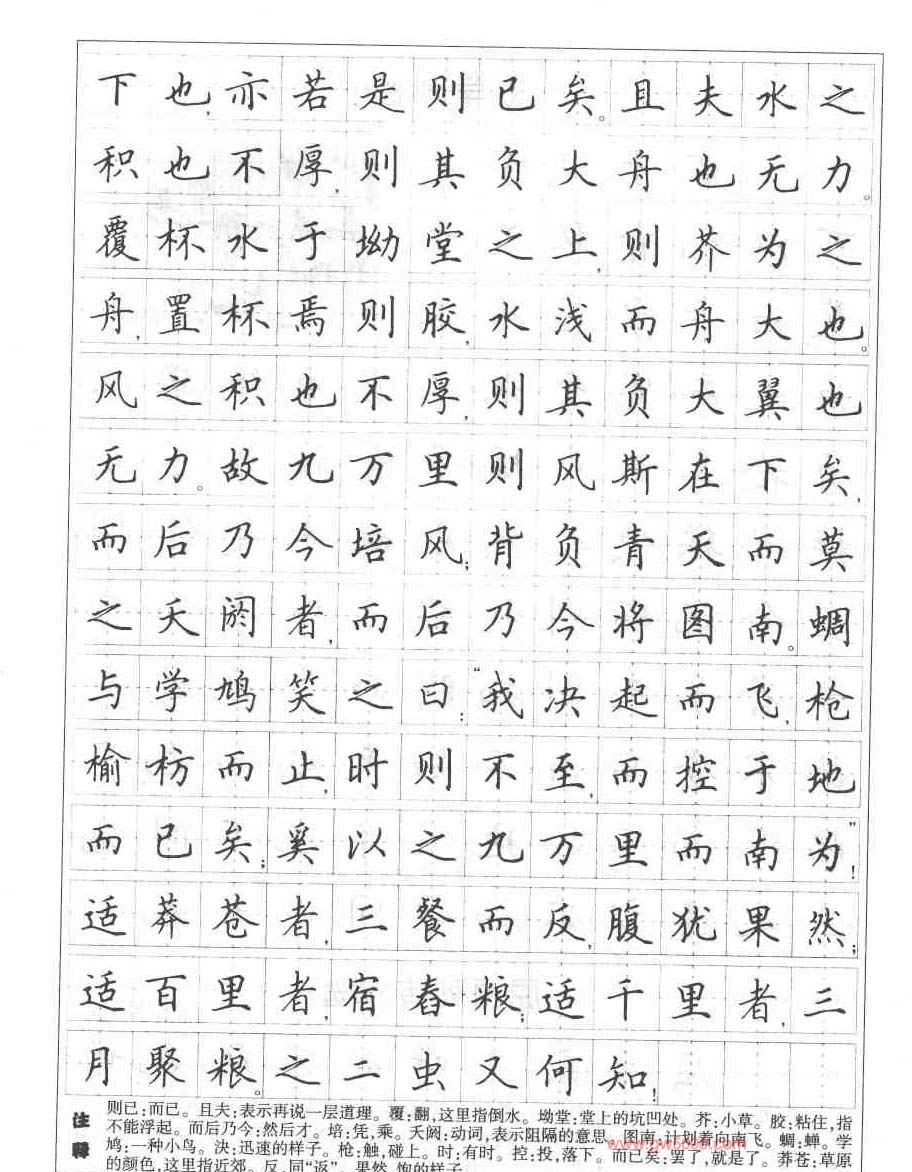 下也,亦若是则已矣。且夫水之
积也不厚,则其负大舟也无力。
覆杯水于坳堂之上,则芥为之
舟,置杯焉则胶,水浅而舟大也。
风之积也不厚,则其负大翼也
无力。故九万里则风斯在下矣,
而后乃今培风;背负青天而莫
之夭阏者,而后乃今将图南。蜩
与学鸠笑之曰:“我决起而飞,枪
榆枋而止,时则不至,而控于地
而已矣;奚以之九万里而南为”!
适莽苍者,三餐而反,腹犹果然;
适百里者,宿舂粮;适千里者,三
月聚粮。之二虫又何知!
注释
则已:而已。且夫:表示再说一层道理。覆:翻,这里指倒水。坳堂:堂上的坑凹处。芥:小草。胶:粘住,指
不能浮起。而后乃今:然后才。培:凭,乘。夭阏:动词,表示阻隔的意思。图南:计划着向南飞。蜩:蝉。学
鸠:一种小鸟。决:迅速的样子。枪:触,碰上。时:有时。控:投,落下。而已矣:罢了,就是了。莽苍:草原
的颜色,这里指近郊。反,同“返”。果然,饱的样子